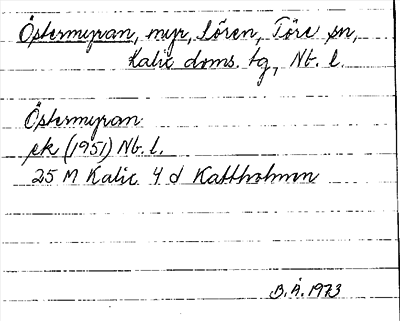 Östermyran, myr, Lören, Töre sn,
Kalix doms. tg, Nb. l.
Östermyran
ek (1951) Nb. l.
25 M Kalix 4 d Kattholmen
B.Å. 1973